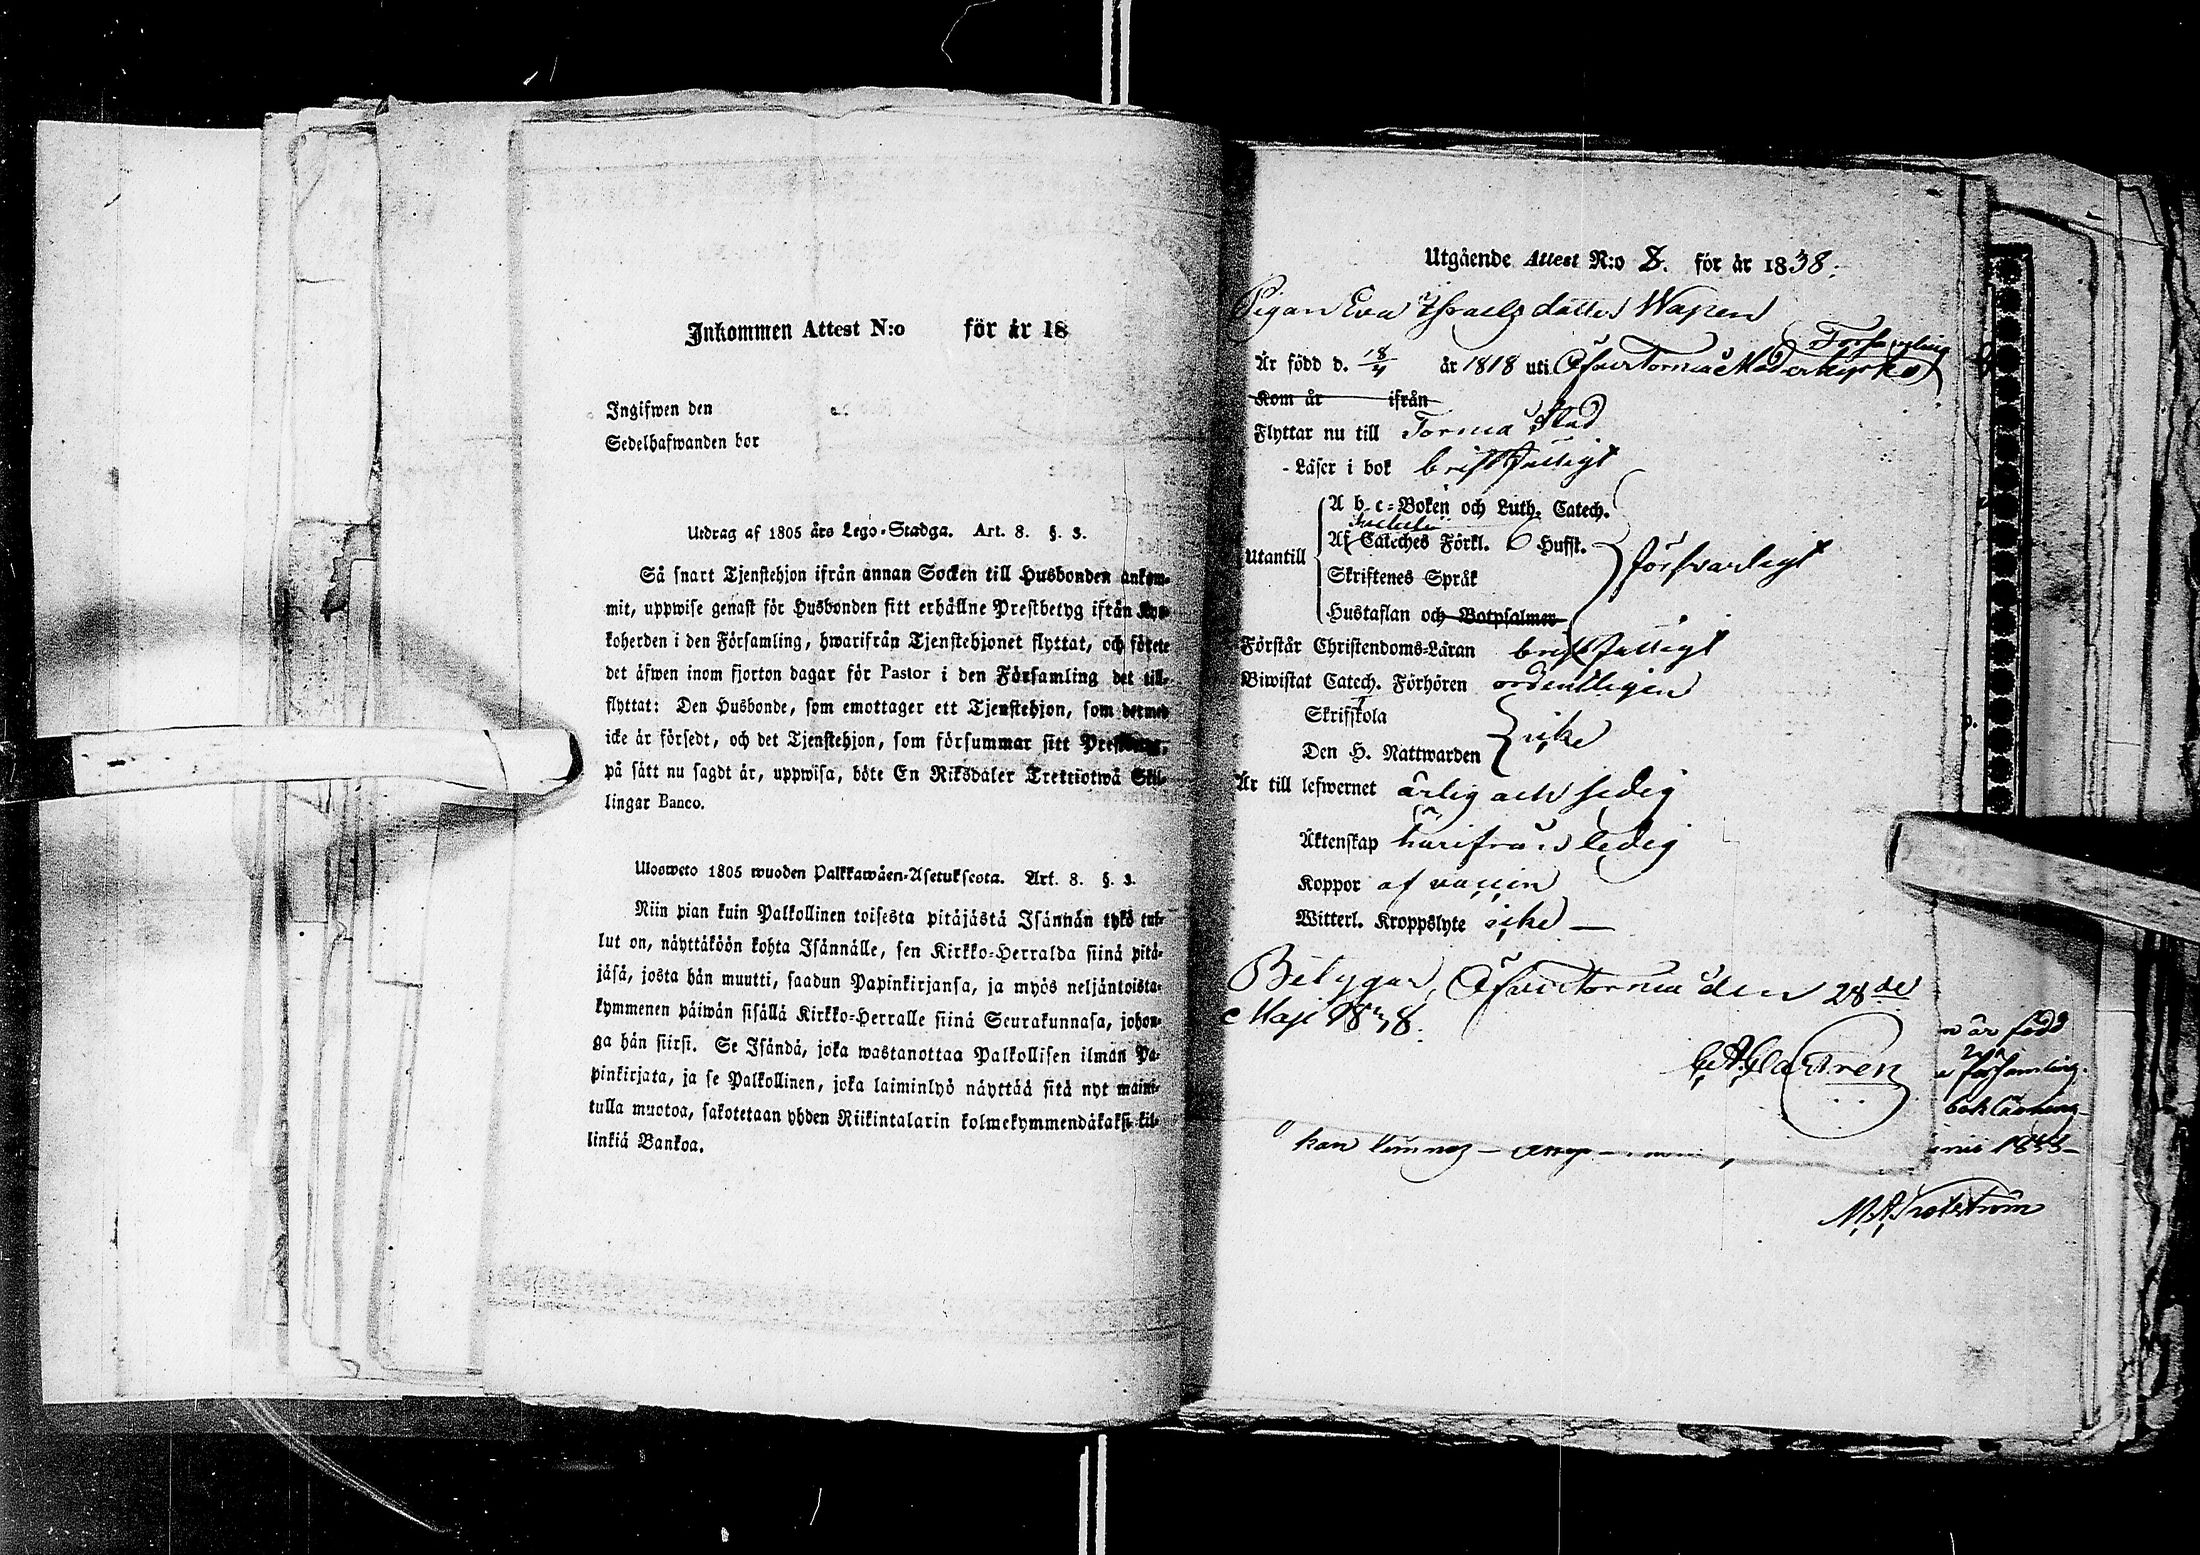 Inkommen Attest N:o för år 18
Ingifwen den
Sedelhafwanden bor
Utdrag af 1805 års Lego-Stadga. Art. 8. §. 3.
Så snart Tjenstehjon ifrån annan Socken till Husbonden ankom-
mit, uppwise genast för Husbonden sitt erhållne Prestbetyg ifrån Kyr-
koherden i den Församling, hwarifrån Tjenstehjonet flyttat, och förete
det äfwen inom fjorton dagar för Pastor i den Församling det till-
flyttat: Den Husbonde, som emottager ett Tjenstehjon, som dermed
icke är försedt, och det Tjenstehjon, som försummar sitt Prestbetyg,
på sätt nu sagdt är, uppwisa, böte En Riksdaler Trettiotwå Skil-
lingar Banco.
Ulosweto 1805 wuoden Palkkawäen-Asetuksesta. Art. 8. §. 3.
Niin pian kuin Palkollinen toisesta pitäjästä Isännän tykö tul-
lut on, näyttäköön kohta Isännälle, sen Kirkko-Herralda siinä pitä-
jäsä, josta hän muutti, saadun Papinkirjansa, ja myös neljäntoista-
kymmenen päiwän sisällä Kirkko-Herralle siinä Seurakunnasa, johon-
ga hän siirsi. Se Isändä, joka wastanottaa Palkollisen ilman Pa-
pinkirjata, ja se Palkollinen, joka laiminlyö näyttää sitä nyt maini-
tulla muotoa, sakotetaan yhden Riikintalarin kolmekymmendäkaksi kil-
linkiä Bankoa.
Utgående Attest N:o 8. för år 1838.
Pigan Eva Israelsdotter Wapen
Är född d. 18/4 år 1818 uti Öfver Torneå Moderkyrko
Församling
Kom år ifrån
Flyttar nu till Torneå Stad
Läser i bok bristfälligt
Utantill
A b c-Boken och Luth. Catech.
Af Cateches Förkl. 6 Hufst.
Skriftenes Språk
Hustaflan och Botpsalmer
försvarligt
Förstår Christendoms-Läran bristfälligt
Biwistat Catech. Förhören ordentligen
Skrifskola
Den H. Nattwarden
icke
Är till lefwernet ärlig och sedig
Äktenskap härifrån ledig
Koppor af vaccin
Witterl. Kroppslyte icke —
Betygar, Öfver Torneå den 28de
Maji 1838.
C. A. Castren
n är född
församling.
bokläsning
kan lemnas
M. A.